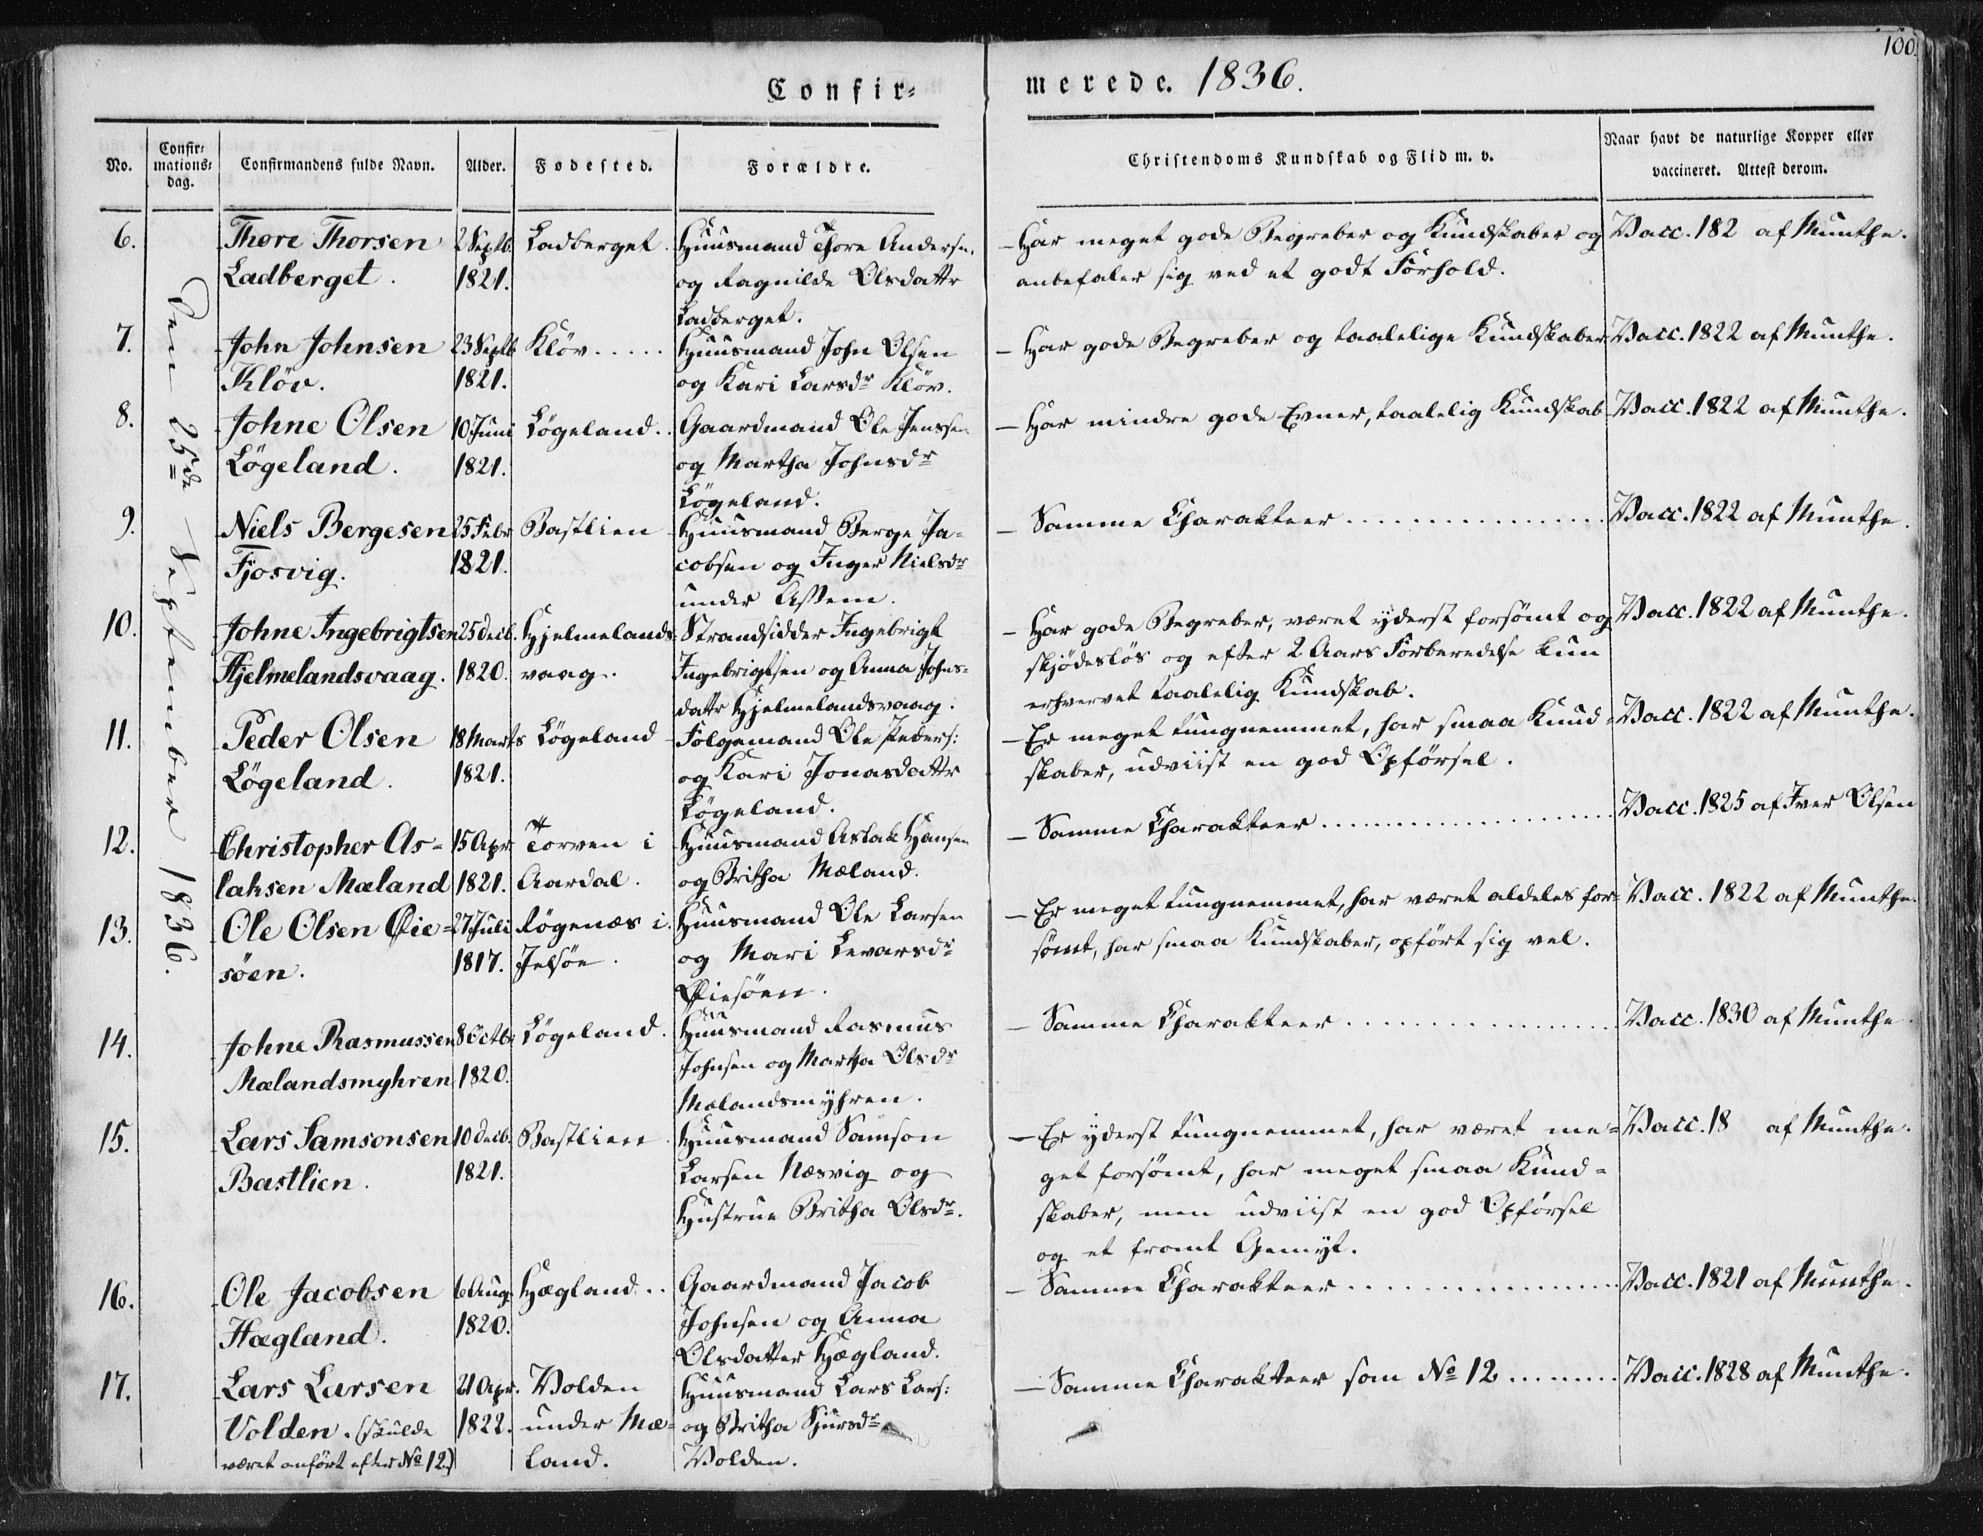 100.
Confir=
merede. 1836.
No.
Confir=
mations=
dag.
Confirmandens fulde Navn.
Alder.
Fødested.
Forældre.
Christendoms Kundskab og Flid m. v.
Naar havt de naturlige Kopper eller
vaccineret. Attest derom.
Den 25de September 1836.
6.
Thore Thorsen
Ladberget.
2 Septb.
1821.
Ladberget.
Huusmand Thore Andersn.
og Ragnilde Olsdattr
Ladberget.
- Har meget gode Begreber og Kundskaber og
anbefaler sig ved et godt Forhold.
Vacc. 182 af Munthe.
7.
John Johnsen
Kløv.
23 Septb
1821.
Kløv.....
Huusmand John Olsen
og Kari Larsdr Kløv.
- Har gode Begreber og taalelige Kundskaber
Vacc. 1822 af Munthe.
8.
Johne Olsen
Løgeland.
10 Juni
1821.
Løgeland..
Gaardmand Ole Jenssen
og Martha Johnsdr
Løgeland.
- Har mindre gode Evner, taalelig Kundskab
Vacc. 1822 af Munthe.
9.
Niels Bergesen
Fjosvig.
25 Febr
1821.
Bastlien
Huusmand Berge Ja=
cobsen og Inger Nielsdr
under Assem.
- Samme Charakteer .................
Vacc. 1822 af Munthe.
10.
Johne Ingebrigtsen
Hjelmelandsvaag.
25 Decb.
1820.
Hjelmelands
vaag..
Strandsidder Ingebrigt
Ingebrigtsen og Anna Johns=
dattr Hjelmelandsvaag.
- Har gode Begreber, været yderst forsømt og
skjødesløs og efter 2 Aars Forberedelse kun
erhvervet taalelig Kundskab.
Vacc. 1822 af Munthe.
11.
Peder Olsen
Løgeland.
18 Marts
1821.
Løgeland
Følgemand Ole Peders:
og Kari Jonasdattr
Løgeland.
- Er meget tungnemmet, har smaa Kund=
skaber, udviist en god Opførsel.
Vacc. 1822 af Munthe.
12.
Christopher As=
laksen Mæland
15 Apr
1821.
Torven i
Aardal.
Huusmand Aslak Hansen
og Britha Mæland.
- Samme Charakteer .....................
Vacc. 1825 af Iver Olsen
13.
Ole Olsen Øie=
søen.
27 Juli
1817.
Røgenæs i
Jelsøe.
Huusmand Ole Larsen
og Mari Levarsdr
Øiesøen.
- Er meget tungnemmet, har været aldeles for=
sømt, har smaa Kundskaber, opført sig vel.
Vacc. 1822 af Munthe.
14.
Johne Rasmussen
Mælandsmyhren
8 Octb:
1820.
Løgeland.
Huusmand Rasmus
Johnsen og Martha Olsdr
Mælandsmyhren.
- Samme Charakteer ..................
Vacc. 1830 af Munthe.
15.
Lars Samsonsen
Bastlien.
10 Decb.
1821.
Bastlien
Huusmand Samson
Larsen Næsvig og
Hustrue Britha Olsdr.
- Er yderst tungnemmet, har været me=
get forsømt, har meget smaa Kund=
skaber, men udviist en god Opførsel
og et fromt Gemyt.
Vacc. 18 af Munthe.
16.
Ole Jacobsen
Hægland.
6 Aug.
1820.
Hægland...
Gaardmand Jacob
Johnsen og Anna
Olsdatter Hægland.
- Samme Charakteer ..................
Vacc. 1821 af Munthe.
17.
Lars Larsen
Volden. (skulde
været anført efter No 12.)
21 Apr.
1822.
Volden
under Mæ=
land.
Huusmand Lars Lars:
og Britha Sjursdr
Volden.
- Samme Charakteer som No 12 .........
Vacc. 1828 af Munthe.